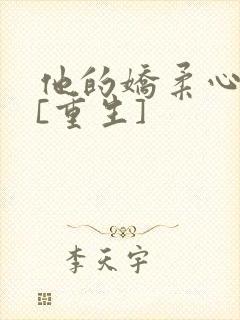 他的嬌柔心
[重生]
李天宇